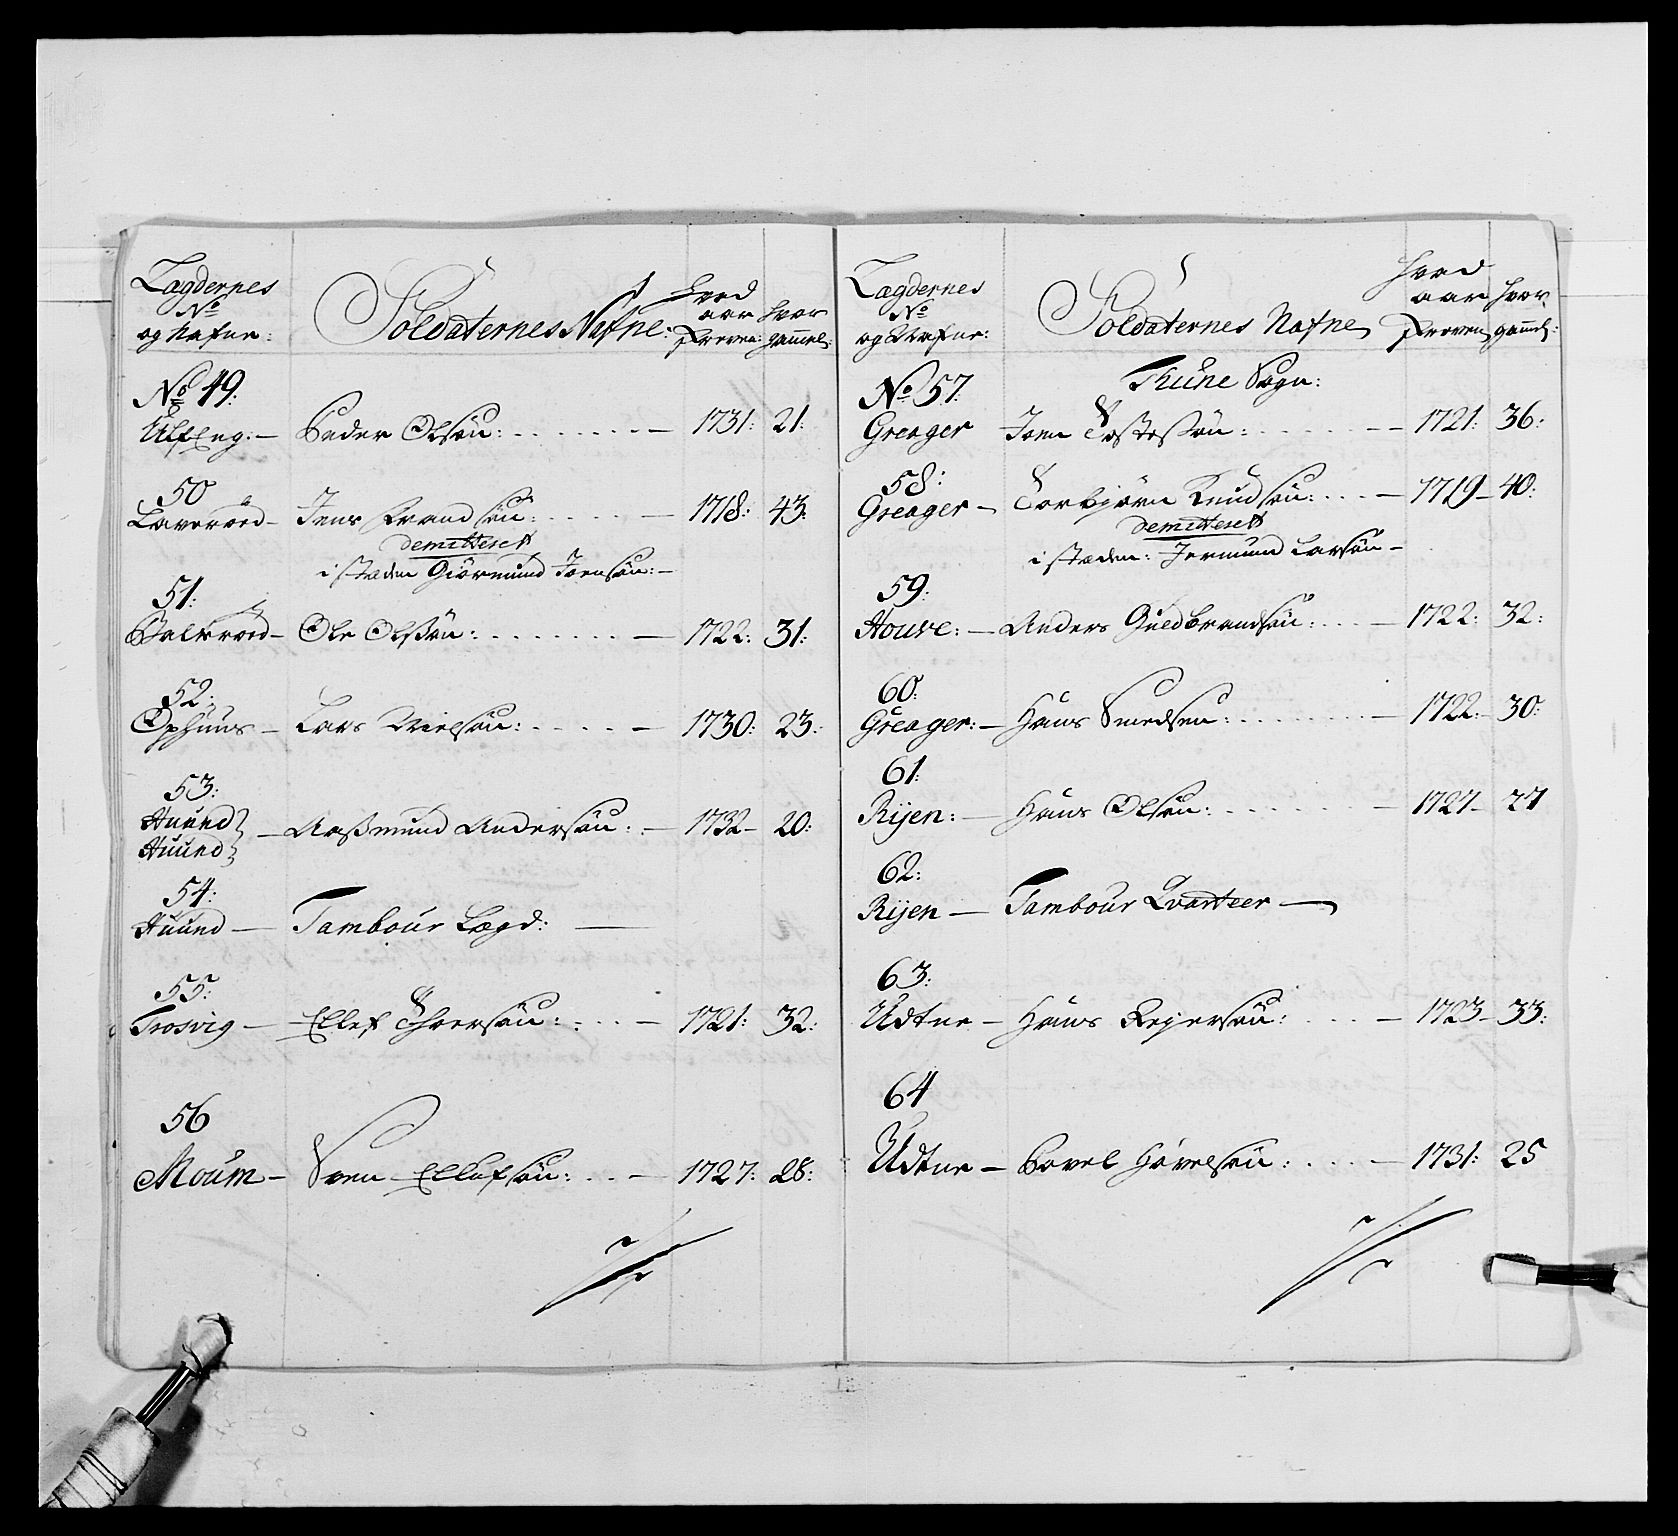 Lægdernes
No
og Nafne:
Soldaternes Nafne:
hvad
aar
Prøven:
hvor
gammel:
No 49:
Ulfeng:— Peder Olsøn: — 1731: 21:
50
Laverøed— Jens Frandsøn: — 1718: 43:
demitteret
i stæden Giörmund Joensøn:—
51:
Balkrøed— Ole Olssøn: — 1722: 31:
52:
Ophuus— Lars Nielsøn: — 1730: 23:
53:
Huund
Huund
— Aasmund Andersøn: — 1732— 20:
54:
Huund— Tambour Lægd: —
55:
Trosvig— Ellef Ifversøn: — 1721: 32:
56
Moum— Sven Ellefsøn: — 1727: 28:
Lægdernes
No
og Nafne:
Soldaternes Nafne
hvad
aar
Prøven
hvor
gammel:
No 57:
Thune Sogn:
Greager Joen Tostessøn: — 1721: 36:
58:
Greager— Torbjørn Knudsøn: — 1719— 40:
demitteret
i stæden: Jermund Larsøn—
59:
Houve:— Anders Guldbrandsøn: — 1722: 32:
60:
Greager:— Hans Svendsen: — 1722:— 30:
61:
Rijen:— Hans Olsøn: — 1727— 27
62:
Rijen— Tambour Qvarteer—
63:
Udtne— Hans Reyersøn: — 1723— 33:
64
Udtne— Povel Høvelsøn: — 1731: 25